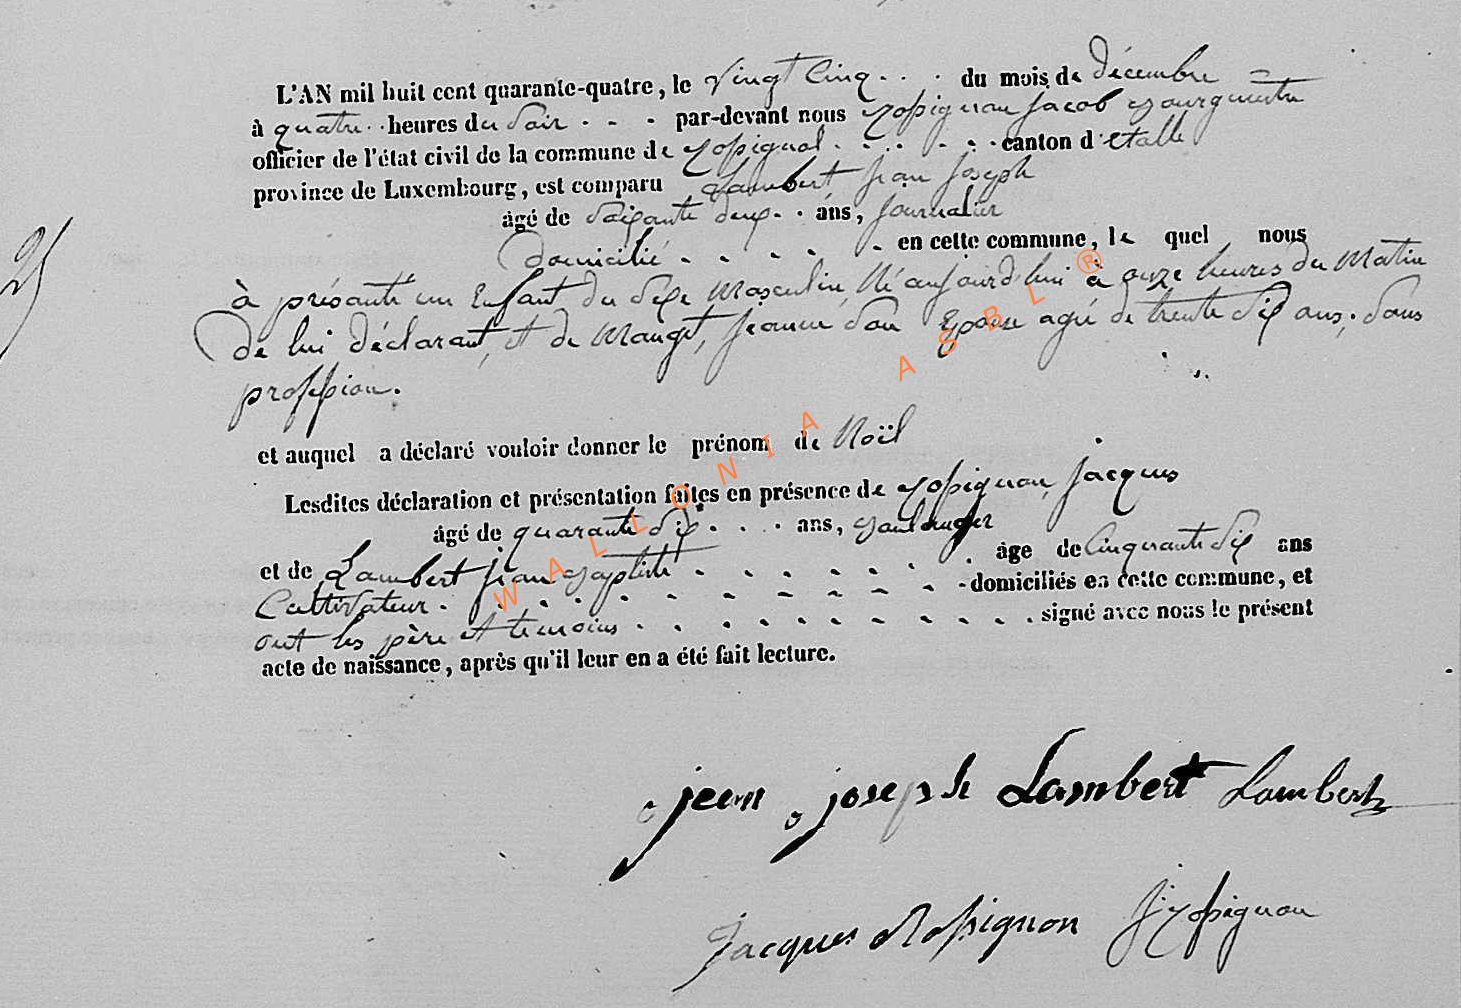 L'AN mil huit cent quarante-quatre, le Vingt Cinq . . . du mois de décembre =
à quatre . . heures du Soir . - - par-devant nous Rossignon Jacob Bourguestre
officier de l'état civil de la commune de Rossignol . . . . - . canton d'Etalle
province de Luxembourg, est comparu Lambert, Jean Joseph
âgé de Soixante deux . . ans, Journalier
Domicilié . . . . . en cette commune, le quel nous
25
à présenté un Enfant du Sexe Masculin Né aujourd'hui à onze heures du Matin
De lui déclarant, et de Manget, Jeanne Son Epouse agée de trente Six ans, Sans
proffssion.
et auquel a déclaré vouloir donner le prénom de Noël
Lesdites déclaration et présentation faites en présence de Rossignon, Jacques
âgé de quarante Six . . . ans, Boulanger
et de Lambert Jean Baptiste . . . . . . . âge de Cinquante Six ans
Cultivateur . . . . . . . . . . - domiciliés en cette commune, et
ont les père et temoins . . . . . . . . . . signé avec nous le présent
acte de naissance, après qu'il leur en a été fait lecture.
jean joseph Lambert Lambert
Jacques Rossignon J Rossignon
WALLONIA ASBL ®